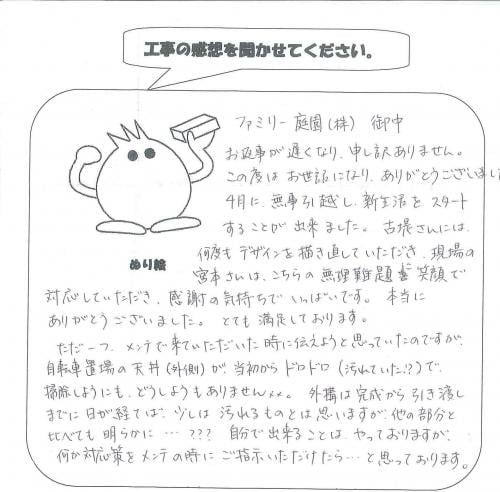 工事の感想を聞かせてください。
ファミリー庭園(株) 御中
お返事が遅くなり、申し訳ありません。
この度はお世話になり、ありがとうございました
4月に、無事引越し、新生活をスタート
することが出来ました。古堤さんには、
何度もデザインを描き直していただき、現場の
宮本さんは、こちらの無理難題も笑顔で
ぬり絵
対応していただき、感謝の気持ちでいっぱいです。本当に
ありがとうございました。とても満足しております。
ただ一つ、メンテで来ていただいた時に伝えようと思っていたのですが、
自転車置場の天井(外側)が当初からドロドロ(汚れていた!?)で、
掃除しようにも、どうしようもありませんxx。外構は完成から引き渡し
までに日が経てば、少しは汚れるものとは思いますが、他の部分と
比べても明らかに…???自分で出来ることは、やっておりますが、
何か対応策をメンテの時にご指示いただけたら…と思っております。